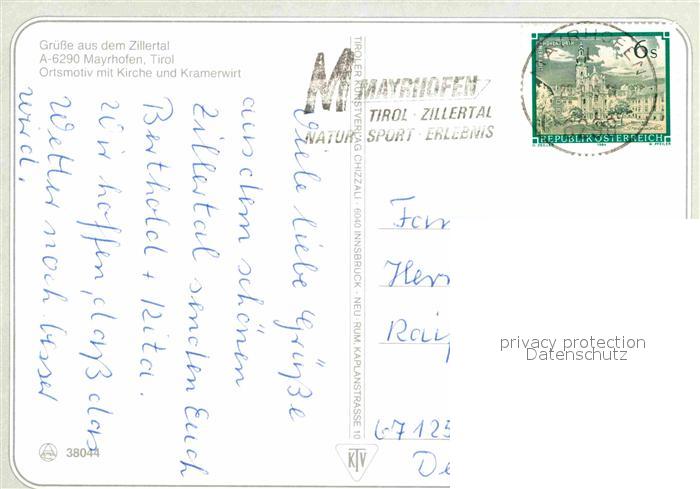 Grüße aus dem Zillertal
A-6290 Mayrhofen, Tirol
Ortsmotiv mit Kirche und Kramerwirt
M MAYRHOFEN
TIROL · ZILLERTAL
NATUR · SPORT · ERLEBNIS
6s
REPUBLIK ÖSTERREICH
1984
Viele liebe Grüße
aus dem schönen
Zillertal senden Euch
Berthold + Rita.
Wir hoffen, daß das
Wetter noch besser
wird.
TIROLER KUNSTVERLAG CHIZZALI · 6040 INNSBRUCK · NEU RUM, KAPLANSTRASSE 10
Fam
Herr
67125
De
privacy protection
Datenschutz
38044
KTV